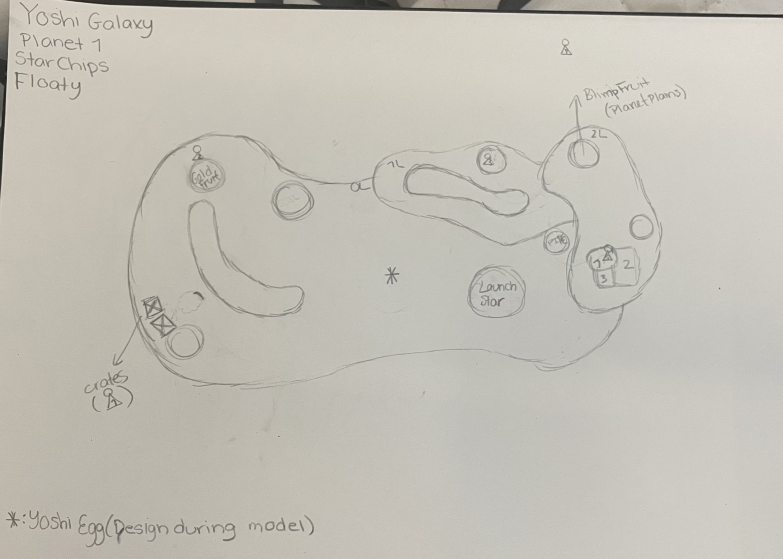 Yoshi Galaxy
Planet 1
Star Chips
Floaty
Blimp Fruit
(Planet Plains)
2L
1L
0L
Gold
fruit
Launch
Star
1
2
3
crates
*: Yoshi Egg (Design during model)